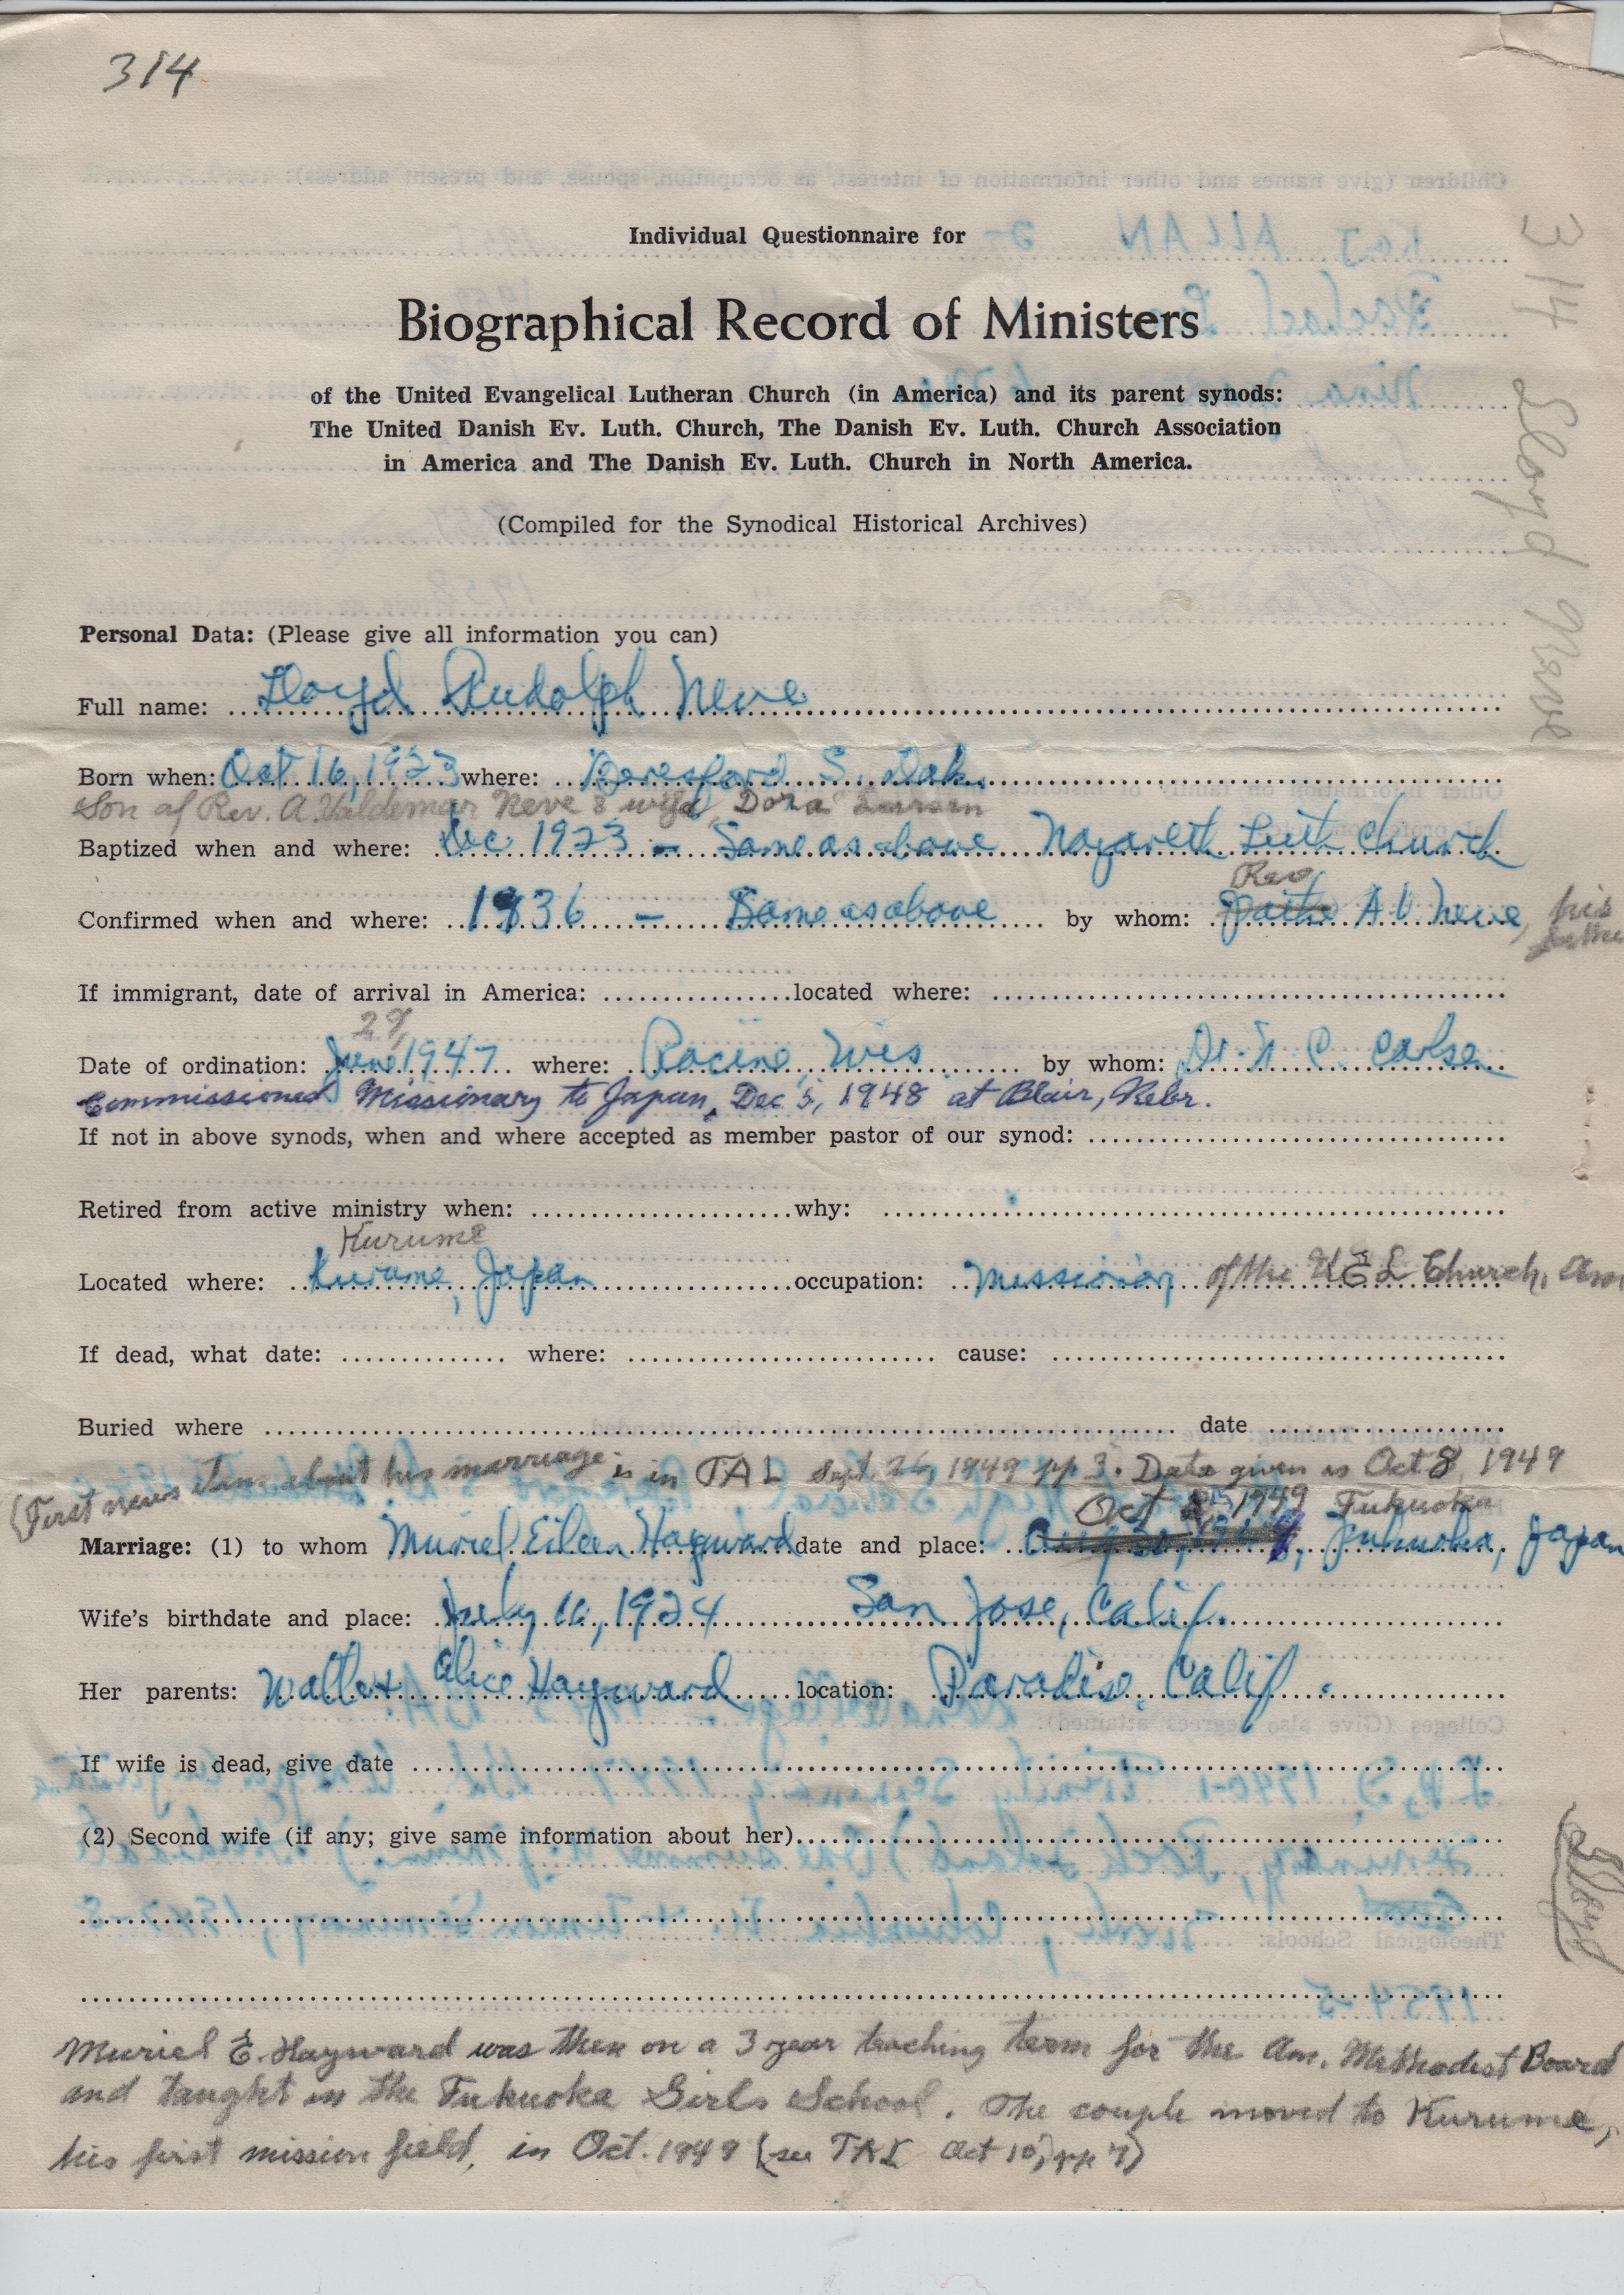 314
Individual Questionnaire for
Biographical Record of Ministers
of the United Evangelical Lutheran Church (in America) and its parent synods:
The United Danish Ev. Luth. Church, The Danish Ev. Luth. Church Association
in America and The Danish Ev. Luth. Church in North America.
(Compiled for the Synodical Historical Archives)
314 Lloyd Neve
Personal Data: (Please give all information you can)
Full name: Lloyd Rudolph Neve
Born when: Oct 16, 1923 where: Beresford S. Dak.
Son of Rev. A. Valdemar Neve & wife, Dora Larsen
Baptized when and where: Dec. 1923 - Same as above Nazareth Luth Church
Rev
Confirmed when and where: 1936 - Same as above by whom: A V Neve, his father
If immigrant, date of arrival in America: located where:
29,
Date of ordination: June 1947 where: Racine, Wis. by whom: Dr. N. C. Carlsen
Commissioned Missionary to Japan, Dec 5, 1948 at Blair, Nebr.
If not in above synods, when and where accepted as member pastor of our synod:
Retired from active ministry when: why:
Kurume
Located where: Kurume, Japan occupation: Missionary of the U E L Church, Am
If dead, what date: where: cause:
Buried where date
(First news item about his marriage is in TAL Sept. 26, 1949 pp 3. Date given as Oct 8, 1949
Oct 8th 1949 Fukuoka
Marriage: (1) to whom Muriel Eileen Hayward date and place: Fukuoka, Japan
Wife's birthdate and place: July 16, 1924 San Jose, Calif.
Her parents: Walter & Alice Hayward location: Paradise, Calif.
If wife is dead, give date
(2) Second wife (if any; give same information about her)
Lloyd
Muriel E. Hayward was then on a 3 year teaching term for the Am. Methodist Board
and taught in the Fukuoka Girls School. The couple moved to Kurume,
his first mission field, in Oct. 1949 (see TAL Oct 10, pp 7)